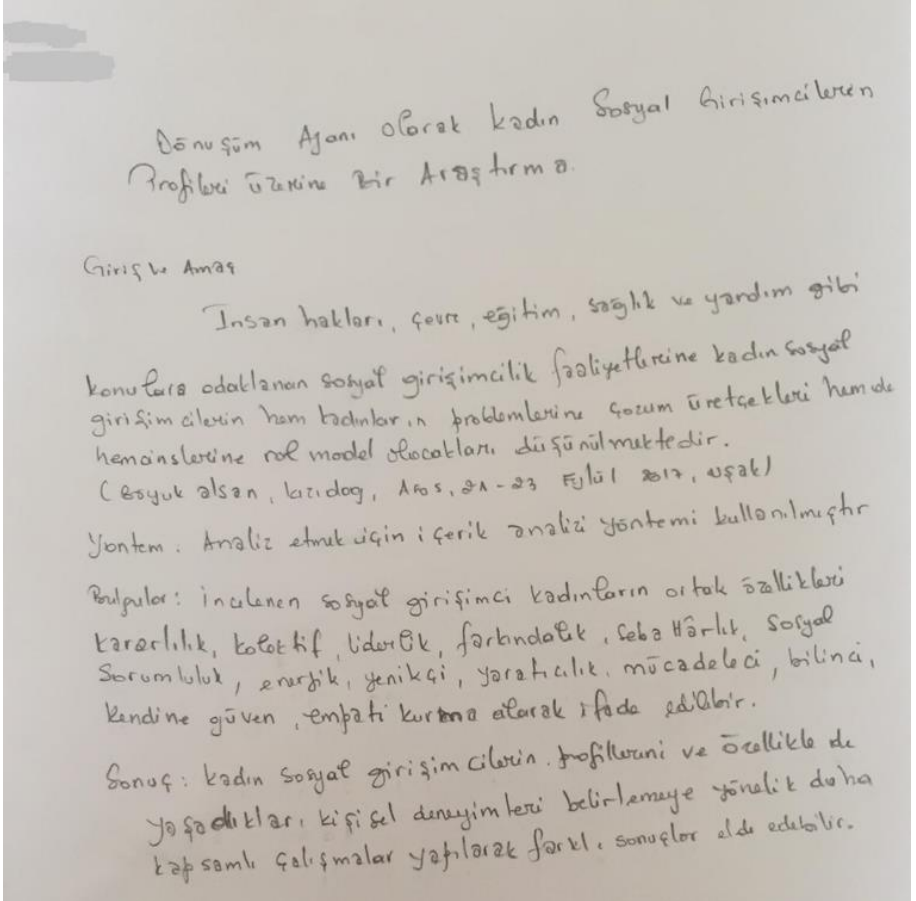 Dönüşüm Ajanı olarak kadın Sosyal Girişimcileren
Profileri üzerine Bir Araştırma.
Giriş ve Amaç
İnsan hakları, çevre, eğitim, sağlık ve yardım gibi
konulara odaklanan sosyal girişimcilik faaliyetlerine kadın sosyal
girişimcilerin hem kadınların problemlerine çozum üretçekleri hemde
hemcinslerine rol model olocakları düşünülmektedir.
(Boyuk alsan, 21-23 Eylül 2017, uşak)
Yontem: Analiz etmek için içerik analizi yöntemi kullanılmıştır
Bulgular: incelenen sosyal girişimci kadınların ortak özellikleri
kararlılık, kolektif, liderlik, farkındalık, Sosyal
Sorumluluk, enerjik, yenikçi, yaratıcılık, mücadeleci, bilinci,
kendine güven, empati kurma olarak ifade edilebir.
Sonuç: kadın sosyal girişimcilerin profillerini ve özellikle de
yaşadıkları kişisel deneyimleri belirlemeye yönelik daha
kapsamlı çalışmalar yapılarak farklı sonuçlar elde edebilir.